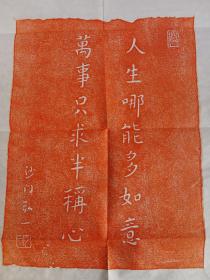 人生哪能多如意
萬事只求半稱心
沙门弘一